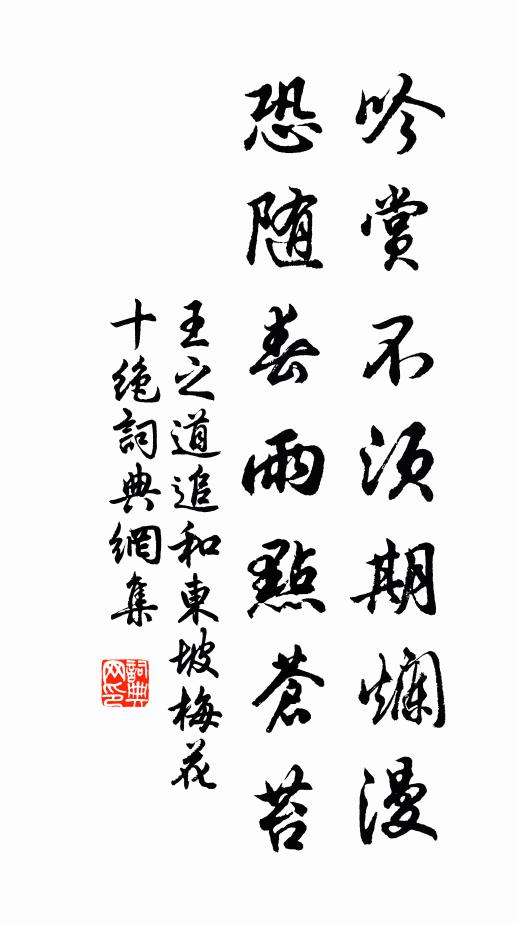 吟賞不須期爛漫
恐随春雨點蒼苔
王之道追和東坡梅花
十绝詞典網集
詞典
网印